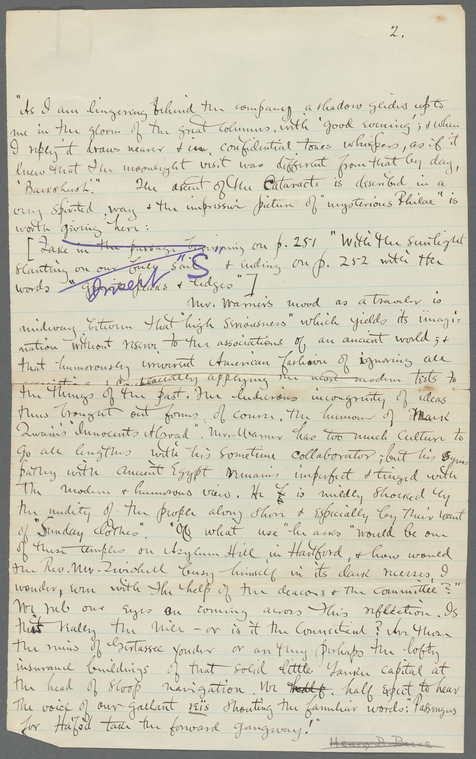 2.
"As I am lingering behind the company a shadow glides up to
me in the gloom of the great columns, with 'good evening'; & when
I reply it draws nearer & in confidential tones whispers, as if it
knew that the moonlight visit was different from that by day,
'Backshish.'" The ascent of the Cataracts is described in a
very spirited way & the impressive picture of "mysterious Philae" is
worth giving here:
[Take in the passage beginning on p. 251 "With the sunlight
slanting on our sails" & ending on p. 252 with the
words " peaks & ledges"]
Insert S
Mr. Warner's mood as a traveler is
midway between that "high seriousness" which yields its imagi-
nation without reserve to the associations of an ancient world, &
that humorously irreverent American fashion of ignoring all
& applying the most modern tests to
the things of the past. The ludicrous incongruity of ideas
thus brought out forms of course the humour of Mark
Twain's "Innocents Abroad". Mr. Warner has too much culture to
go all lengths with his sometime collaborator; but his sym-
pathy with ancient Egypt remains imperfect & tinged with
the modern & humorous view. He is mildly shocked by
the nudity of the people along shore & especially by their want
of "Sunday clothes". "Of what use" he asks "would be one
of these temples on Asylum Hill in Hartford, & how would
the Rev. Mr. Twichell busy himself in its dark recesses I
wonder, even with the help of the deacons & the committee?"
We rub our eyes on coming across this reflection. Is
that really the Nile - or is it the Connecticut? Are those
the ruins of yonder or are they perhaps the lofty
insurance buildings of that solid little Yankee capital at
the head of sloop navigation. We half expect to hear
the voice of our gallant reis shouting the familiar words: "Passengers
for Haf'od take the forward gangway!"
Henry A. Beers